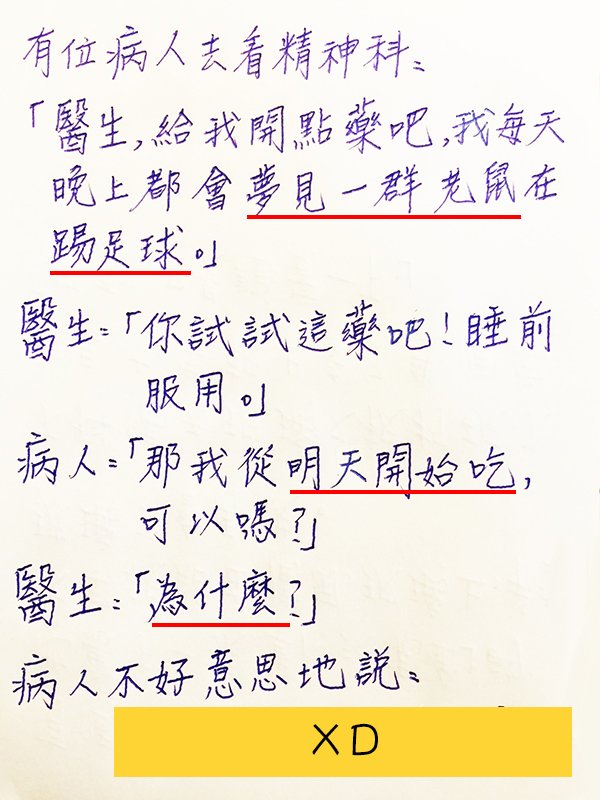 有位病人去看精神科:
「醫生,給我開點藥吧,我每天
晚上都會夢見一群老鼠在
踢足球。」
醫生:「你試試這藥吧!睡前
服用。」
病人:「那我從明天開始吃,
可以嗎?」
醫生:「為什麼?」
病人不好意思地說:
XD